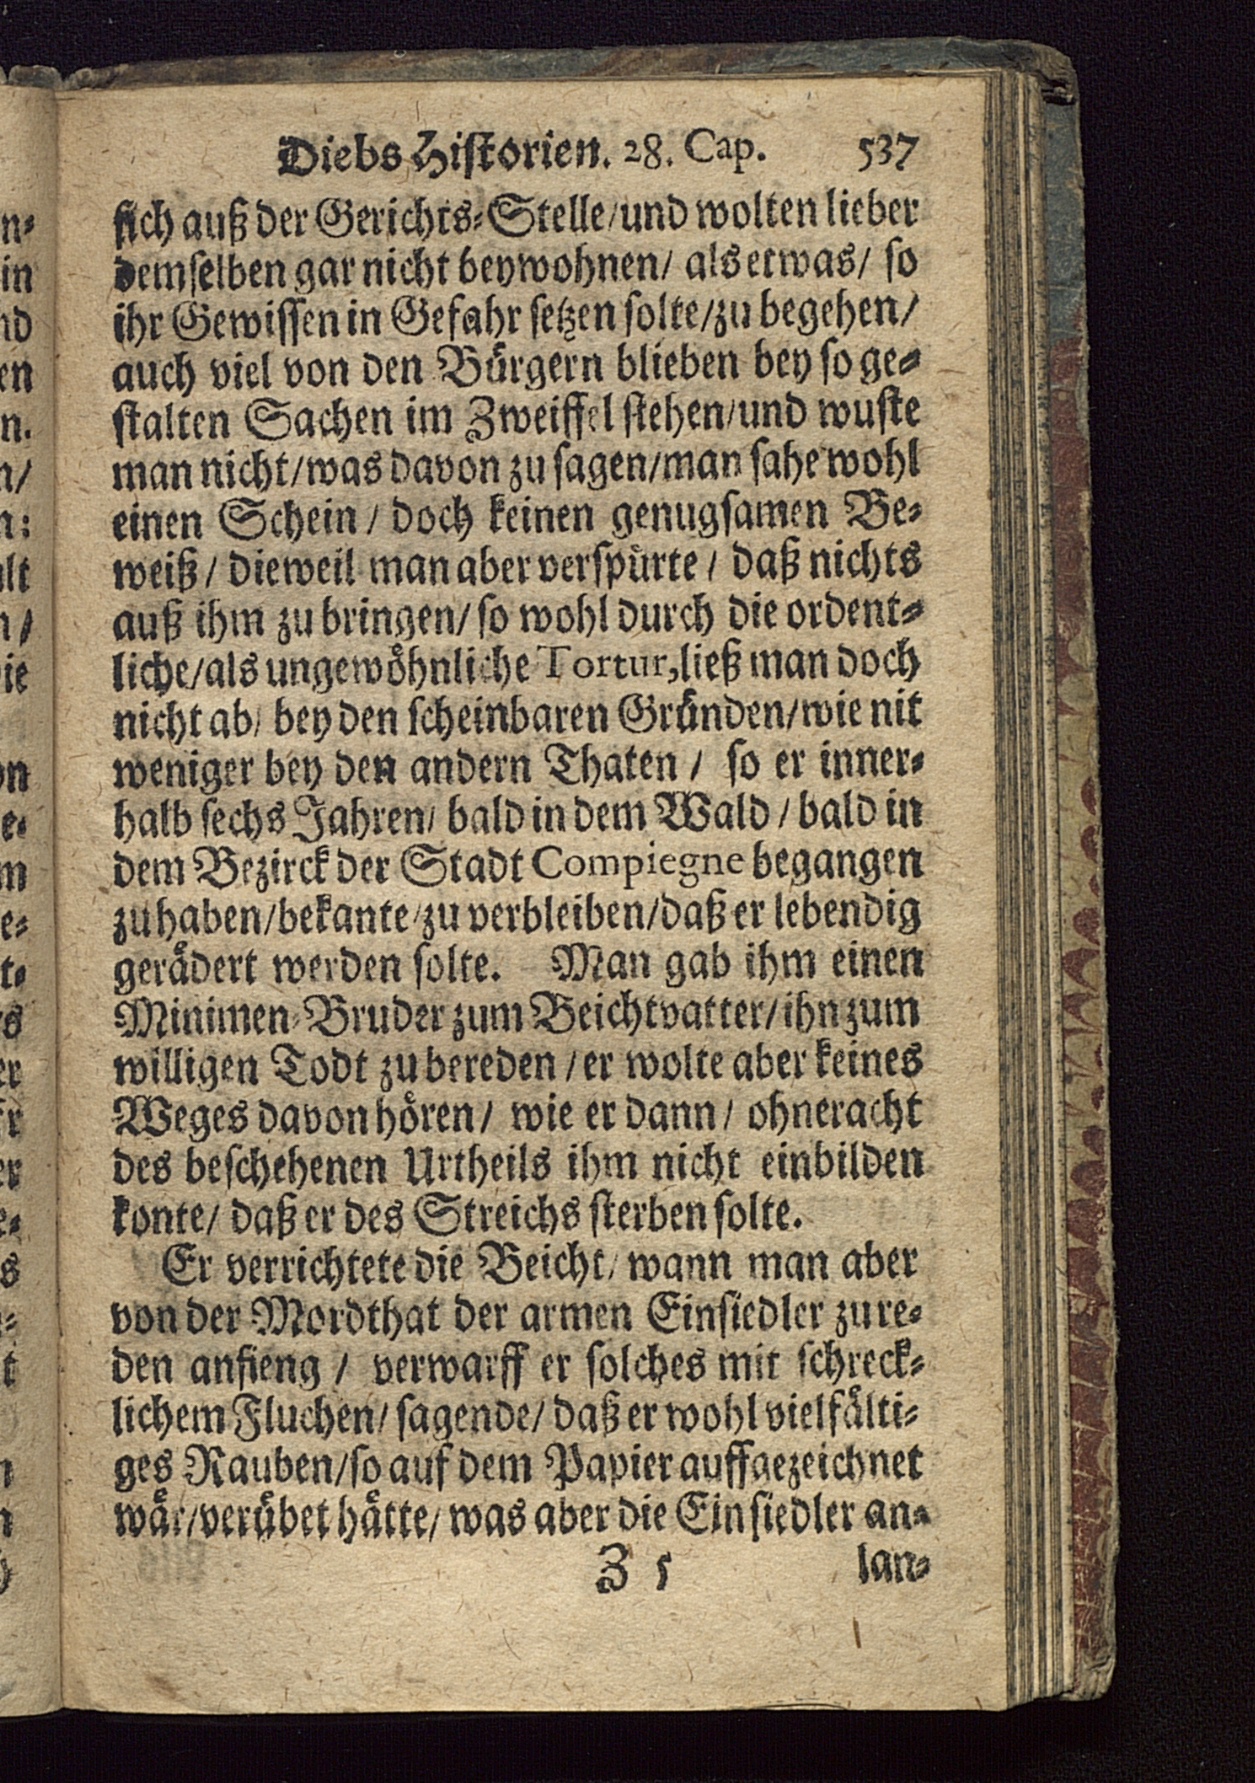 Diebs Historien. 28. Cap. 537
sich auß der Gerichts-Stelle/und wolten lieber
demselben gar nicht beywohnen/ als etwas/ so
ihr Gewissen in Gefahr setzen solte/zu begehen/
auch viel von den Bürgern blieben bey so ge-
stalten Sachen im Zweiffel stehen/und wuste
man nicht/was davon zu sagen/man sahe wohl
einen Schein / doch keinen genugsamen Be-
weiß / dieweil man aber verspürte / daß nichts
auß ihm zu bringen/ so wohl durch die ordent-
liche/als ungewöhnliche Tortur, ließ man doch
nicht ab/ bey den scheinbaren Gründen/wie nit
weniger bey den andern Thaten / so er inner-
halb sechs Jahren/ bald in dem Wald / bald in
dem Bezirck der Stadt Compiegne begangen
zu haben/bekante/zu verbleiben/daß er lebendig
gerädert werden solte. Man gab ihm einen
Minimen-Bruder zum Beichtvatter/ihn zum
willigen Todt zu bereden / er wolte aber keines
Weges davon hören/ wie er dann/ ohneracht
des beschehenen Urtheils ihm nicht einbilden
konte/ daß er des Streichs sterben solte.
Er verrichtete die Beicht/ wann man aber
von der Mordthat der armen Einsiedler zu re-
den anfieng / verwarff er solches mit schreck-
lichem Fluchen/ sagende/ daß er wohl vielfälti-
ges Rauben/so auf dem Papier auffgezeichnet
wär/verübet hätte/ was aber die Einsiedler an-
Z 5 lan-